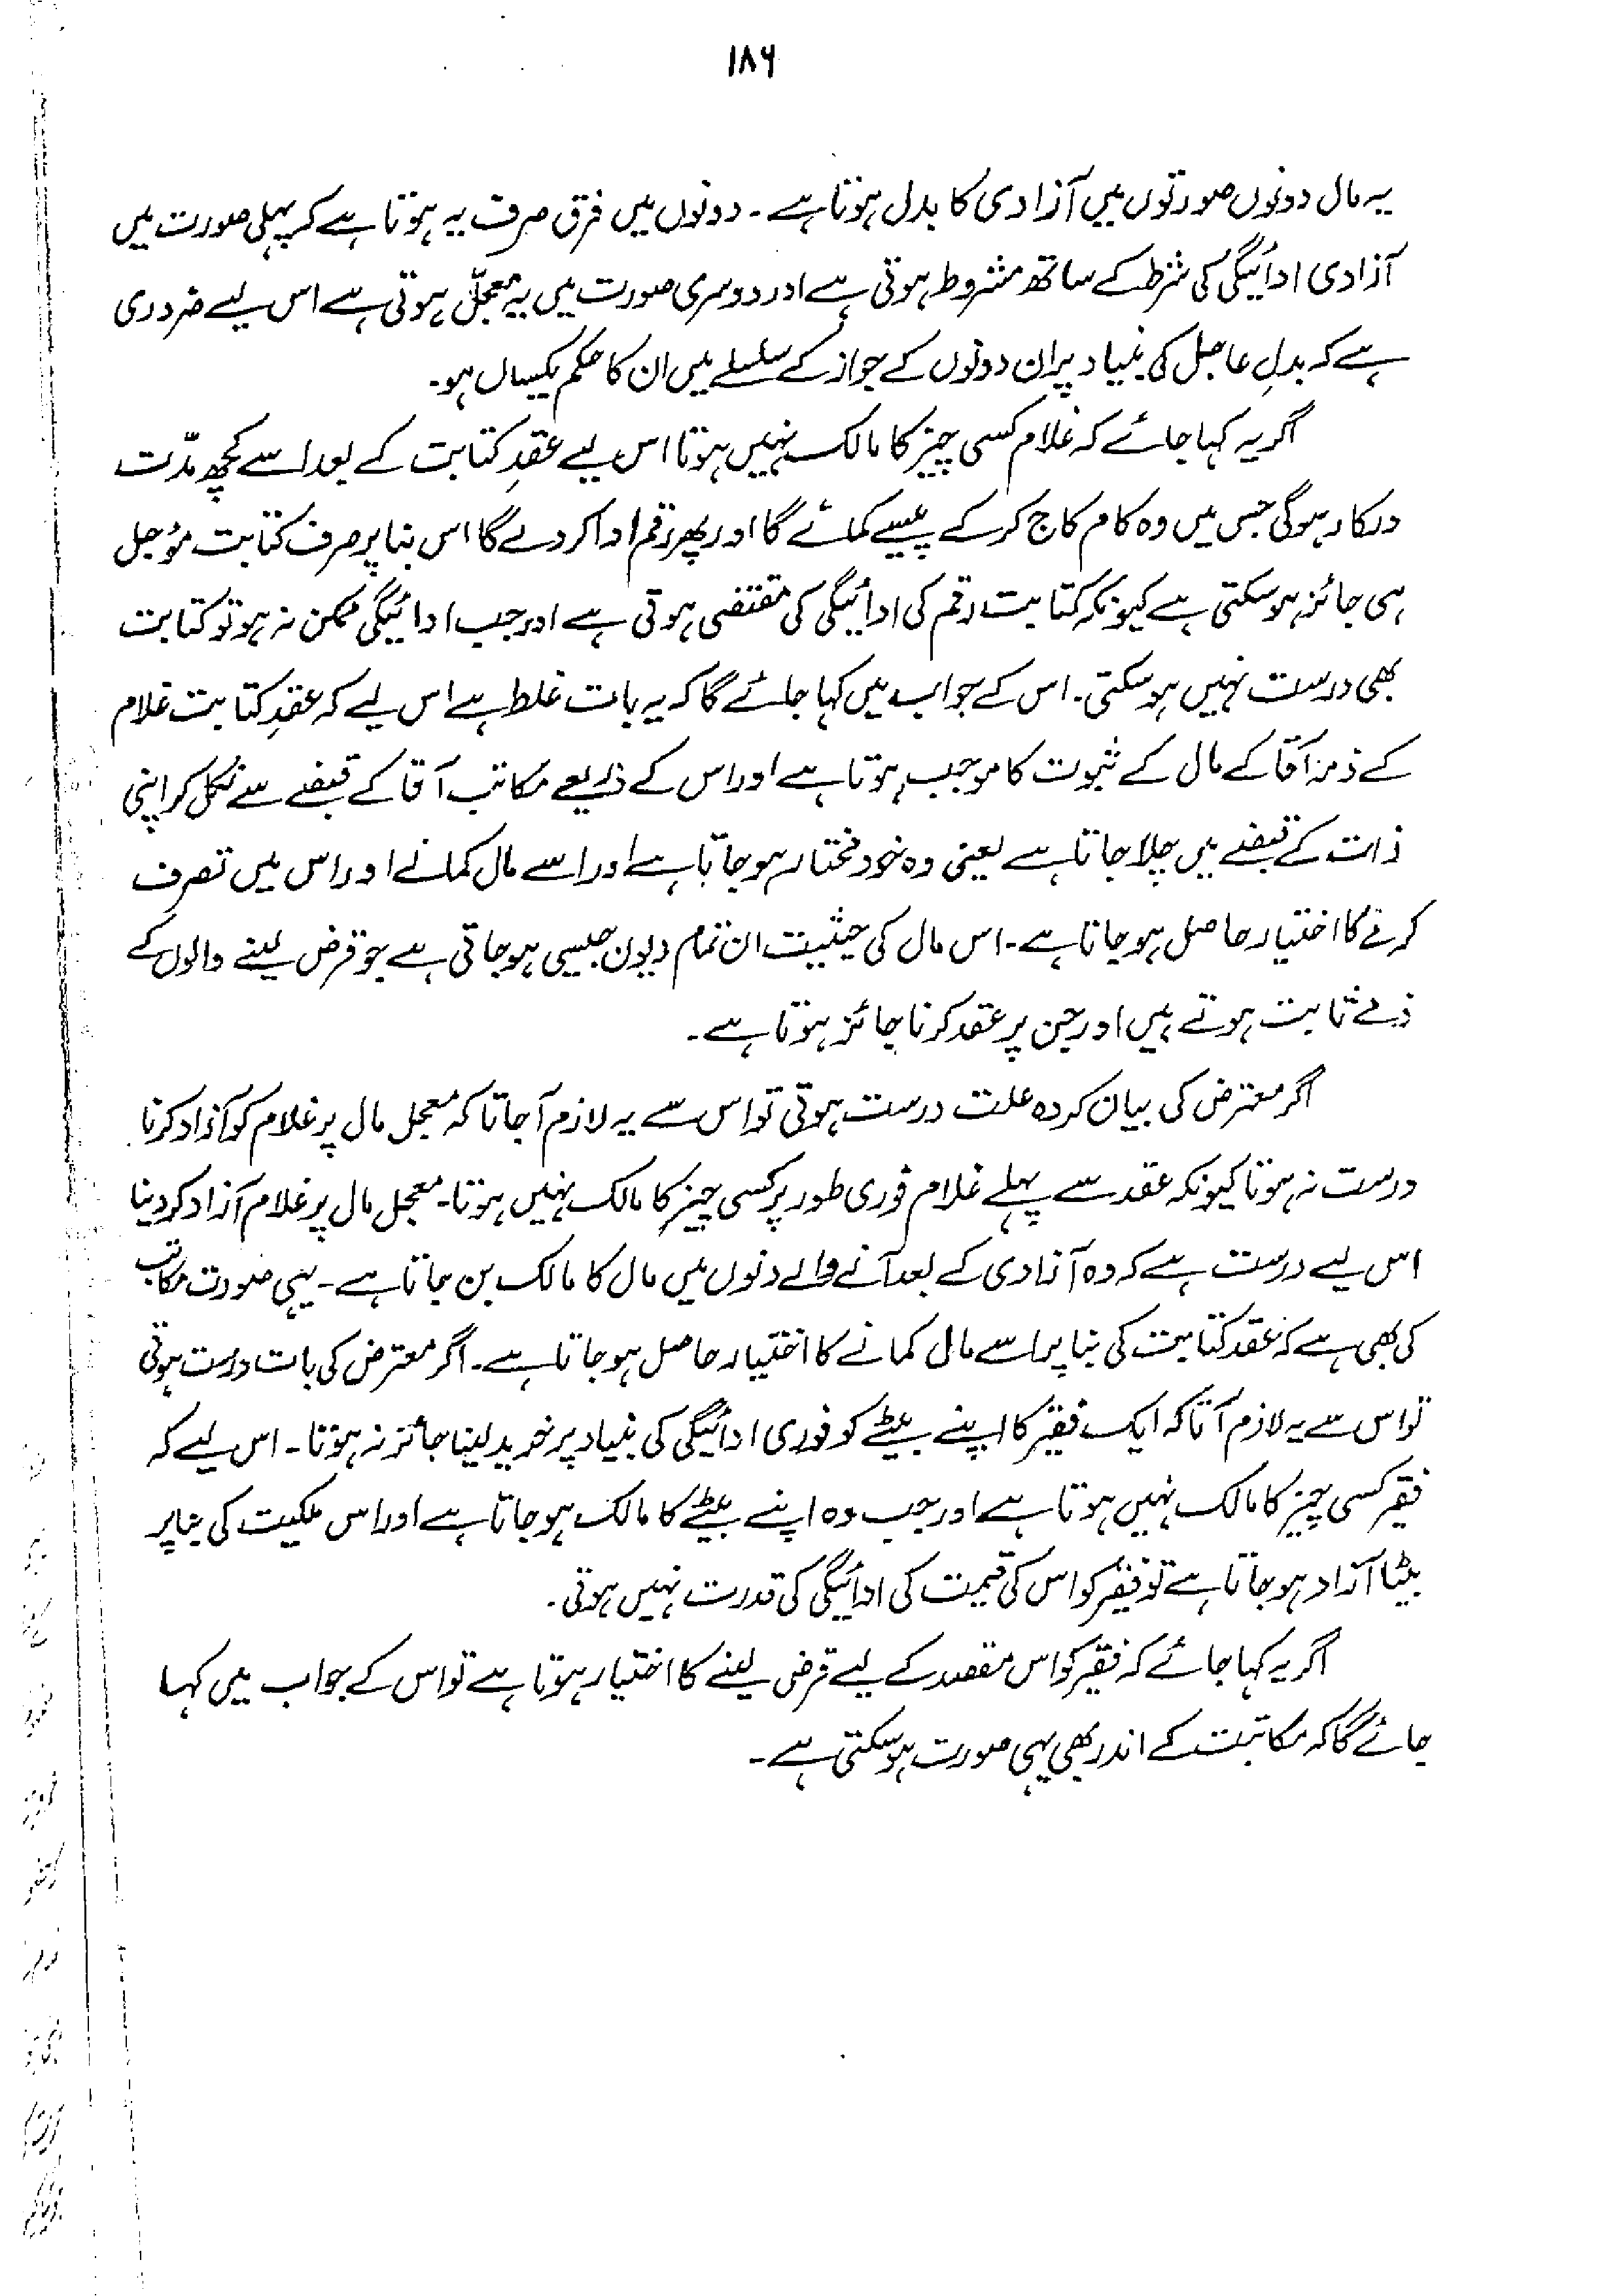 ۱۸۶
یہ مال دونوں صورتوں میں آزادی کا بدل ہوتا ہے۔ دونوں میں فرق صرف یہ ہوتا ہے کہ پہلی صورت میں
آزادی ادائیگی کی شرط کے ساتھ مشروط ہوتی ہے اور دوسری صورت میں یہ معجّل ہوتی ہے اس لیے ضروری
ہے کہ بدلِ عاجل کی بنیاد پر ان دونوں کے جواز کے سلسلے میں ان کا حکم یکساں ہو۔
اگر یہ کہا جائے کہ غلام کسی چیز کا مالک نہیں ہوتا اس لیے عقدِ کتابت کے بعد اسے کچھ مدّت
درکار ہوگی جس میں وہ کام کاج کرکے پیسے کمائے گا اور پھر رقم ادا کردے گا اس بنا پر صرف کتابت مؤجل
ہی جائز ہوسکتی ہے کیونکہ کتابت رقم کی ادائیگی کی مقتضی ہوتی ہے اور جب ادائیگی ممکن نہ ہو تو کتابت
بھی درست نہیں ہوسکتی۔ اس کے جواب میں کہا جائے گا کہ یہ بات غلط ہے اس لیے کہ عقدِ کتابت غلام
کے ذمہ آقا کے مال کے ثبوت کا موجب ہوتا ہے اور اس کے ذریعے مکاتب آقا کے قبضے سے نکل کر اپنی
ذات کے قبضے میں چلا جاتا ہے یعنی وہ خود مختار ہوجاتا ہے اور اسے مال کمانے اور اس میں تصرف
کرنے کا اختیار حاصل ہوجاتا ہے۔ اس مال کی حیثیت ان تمام دیون جیسی ہوجاتی ہے جو قرض لینے والوں کے
ذمے ثابت ہوتے ہیں اور جن پر عقد کرنا جائز ہوتا ہے۔
اگر معترض کی بیان کردہ علت درست ہوتی تو اس سے یہ لازم آجاتا کہ معجل مال پر غلام کو آزاد کرنا
درست نہ ہوتا کیونکہ عقد سے پہلے غلام فوری طور پر کسی چیز کا مالک نہیں ہوتا۔ معجل مال پر غلام آزاد کردینا
اس لیے درست ہے کہ وہ آزادی کے بعد آنے والے دنوں میں مال کا مالک بن جاتا ہے۔ یہی صورت مکاتب
کی بھی ہے کہ عقد کتابت کی بنا پر اسے مال کمانے کا اختیار حاصل ہوجاتا ہے۔ اگر معترض کی بات درست ہوتی
تو اس سے یہ لازم آتا کہ ایک فقیر کا اپنے بیٹے کو فوری ادائیگی کی بنیاد پر خرید لینا جائز نہ ہوتا۔ اس لیے کہ
فقیر کسی چیز کا مالک نہیں ہوتا ہے اور جب وہ اپنے بیٹے کا مالک ہوجاتا ہے اور اس ملکیت کی بنا پر
بیٹا آزاد ہوجاتا ہے تو فقیر کو اس کی قیمت کی ادائیگی کی قدرت نہیں ہوتی۔
اگر یہ کہا جائے کہ فقیر کو اس مقصد کے لیے قرض لینے کا اختیار ہوتا ہے تو اس کے جواب میں کہا
جائے گا کہ مکاتبت کے اندر بھی یہی صورت ہوسکتی ہے۔